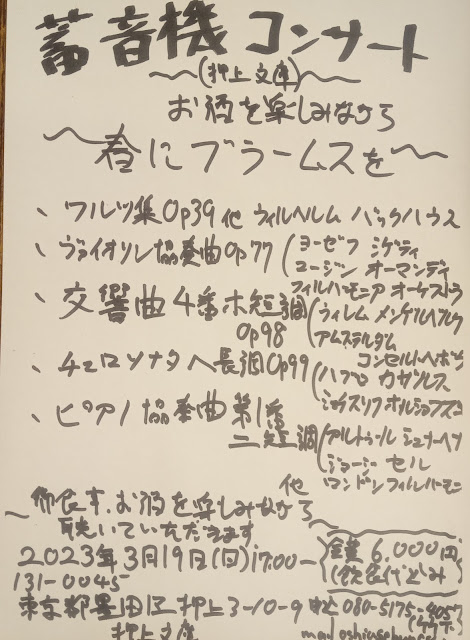 蓄音機コンサート
〜(押上文庫)〜
お酒を楽しみながら
〜春にブラームスを〜
、ワルツ集Op39他 ウィルヘルム バックハウス
、ヴァイオリン協奏曲Op77(ヨーゼフ シゲティ
ユージン オーマンディ
フィルハーモニア オーケストラ
、交響曲4番ホ短調
Op98
(ウィレム メンゲルベルク
アムステルダム
コンセルトヘボウ
、チェロソナタヘ長調Op99
(パブロ カザルス
ミエチスラフ オルショフスキ
、ピアノ協奏曲第1番
ニ短調
(アルトゥール シュナーベル
ジョージ セル
ロンドンフィルハーモニー
他
〜御食事、お酒を楽しみながら〜
聴いていただきます
2023年3月19日(日)17:00〜
会費 6,000円
(飲食代込み
131-0045
東京都墨田区押上3-10-9
080-5175-
押上文庫